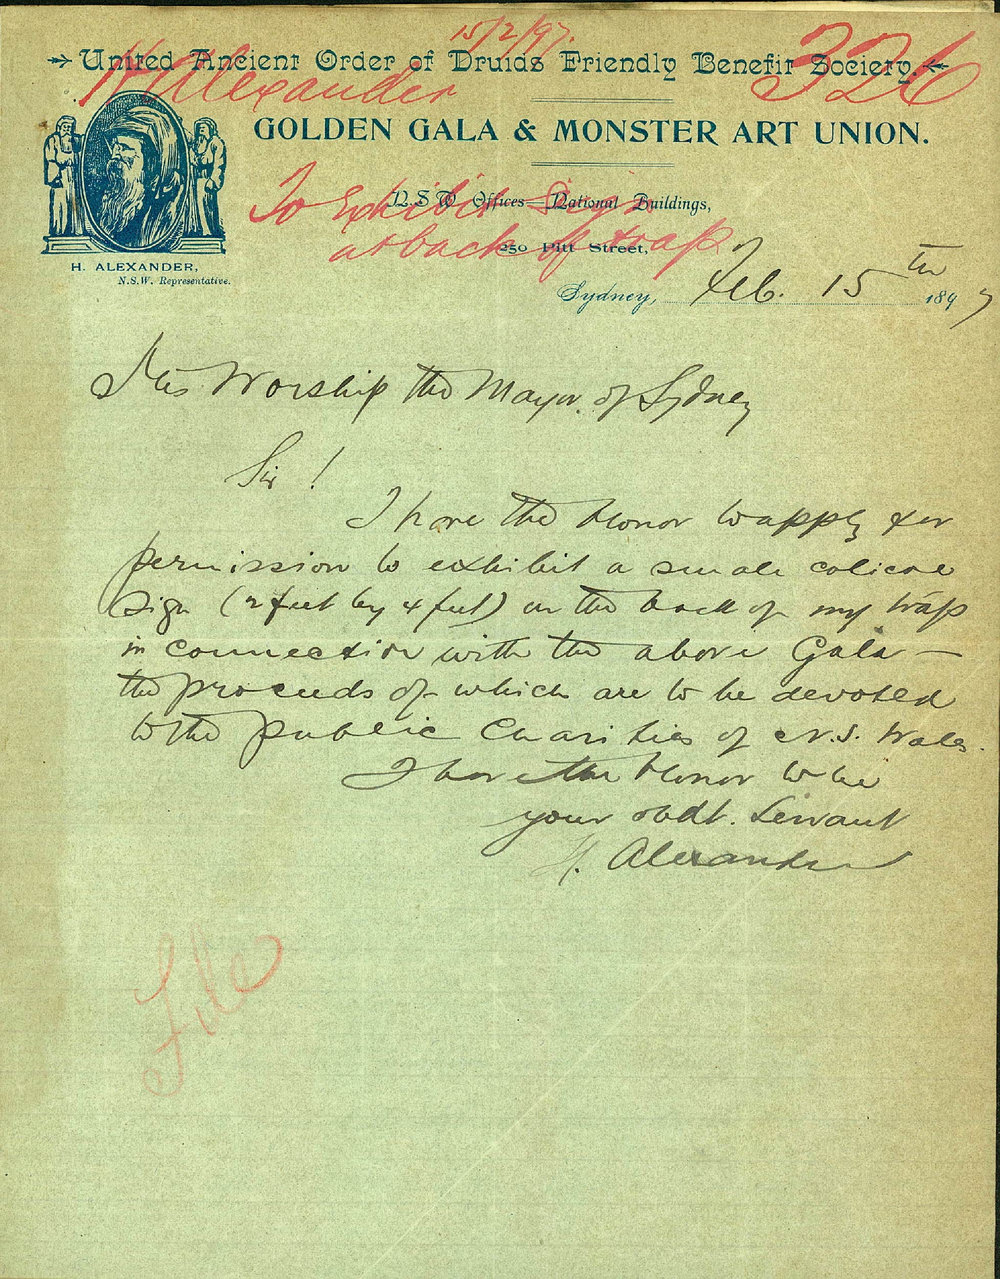 15/2/97.
United Ancient Order of Druids Friendly Benefit Society.
H Alexander
326
GOLDEN GALA & MONSTER ART UNION.
To Exhibit Sign
at back of trap
N.S.W. Offices—National Buildings,
250 Pitt Street,
H. ALEXANDER,
N.S.W. Representative.
Sydney, Feb. 15th 1897
His Worship the Mayor of Sydney
Sir!
I have the Honor to apply for
permission to exhibit a small calicoe
sign (2 feet by 4 feet) on the back of my trap
in connection with the above Gala —
the proceeds of which are to be devoted
to the public Charities of N.S. Wales.
I have the Honor to be
your obdt. Servant
H. Alexander
File